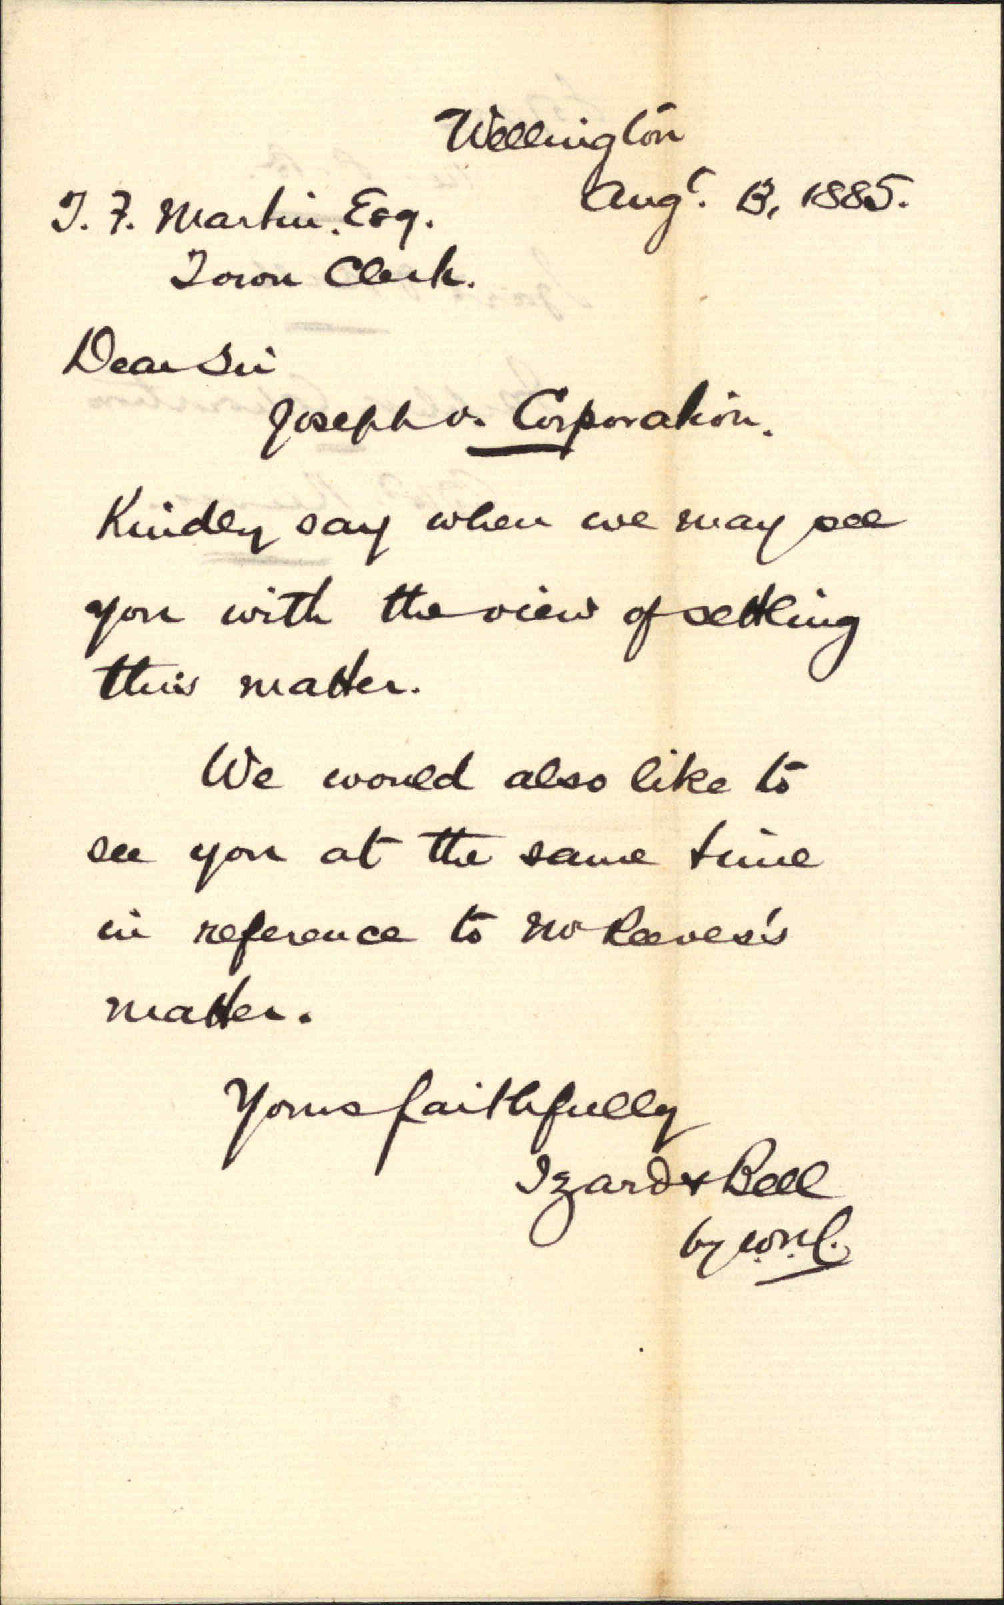 Wellington
Augt. 13, 1885.
T. F. Martin, Esq.
Town Clerk.
Dear Sir
Joseph v. Corporation.
Kindly say when we may see
you with the view of settling
this matter.
We would also like to
see you at the same time
in reference to Mr Reeves's
matter.
Yours faithfully
Izard & Bell
by